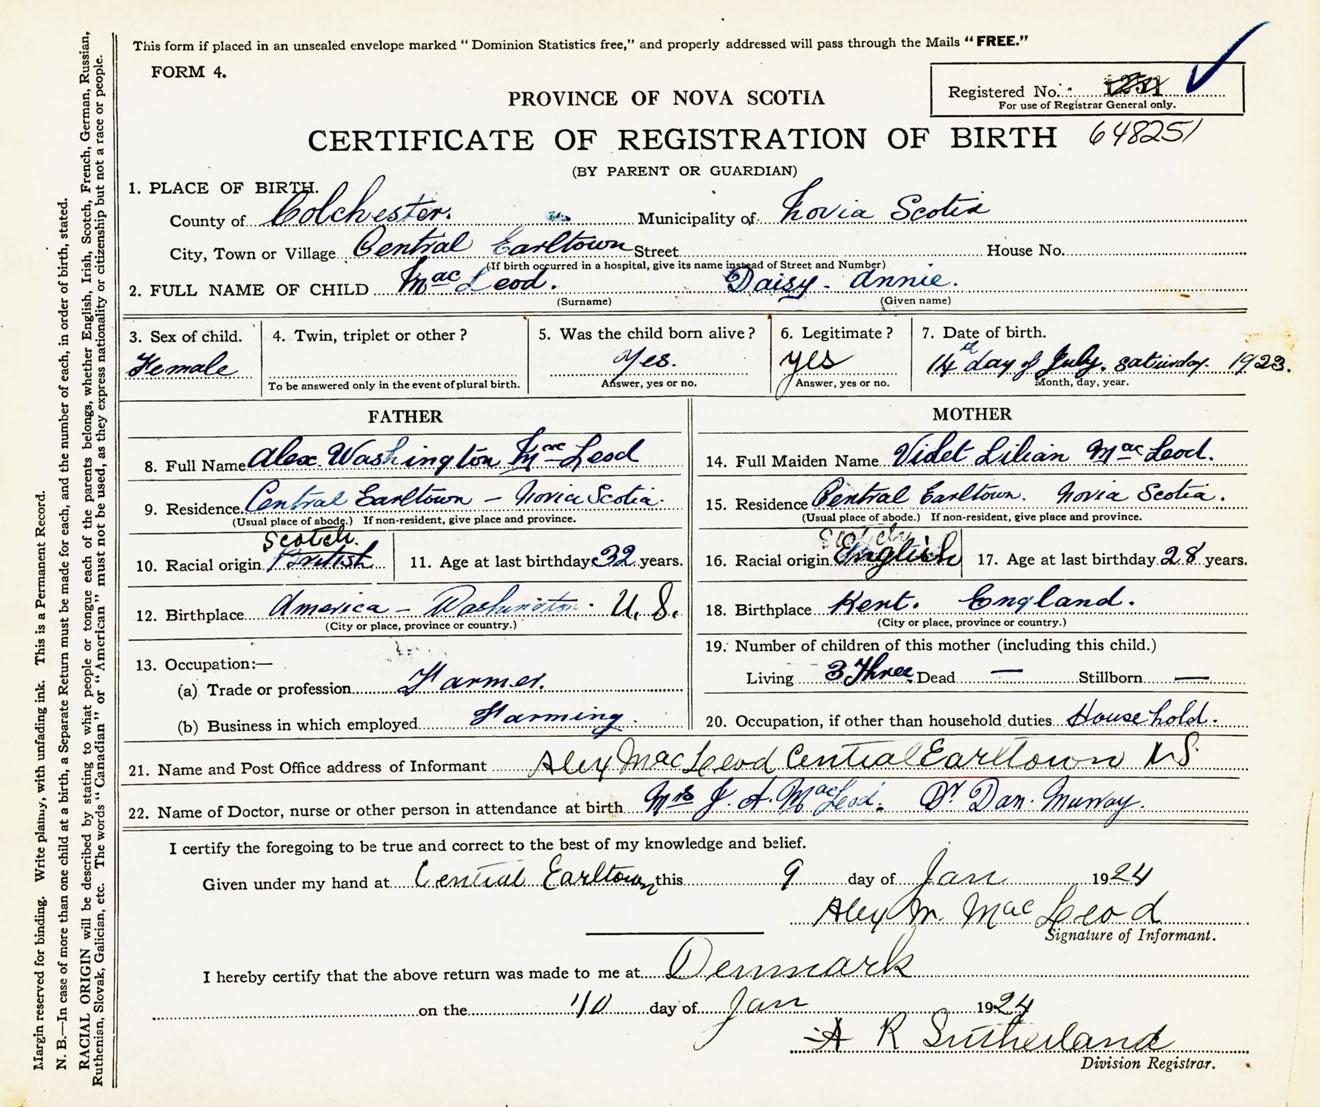 This form if placed in an unsealed envelope marked "Dominion Statistics free," and properly addressed will pass through the Mails "FREE."
FORM 4.
Registered No.
For use of Registrar General only.
PROVINCE OF NOVA SCOTIA
CERTIFICATE OF REGISTRATION OF BIRTH 648251
(BY PARENT OR GUARDIAN)
1. PLACE OF BIRTH.
County of Colchester. Municipality of Novia Scotia
City, Town or Village Central Earltown Street House No.
(If birth occurred in a hospital, give its name instead of Street and Number)
2. FULL NAME OF CHILD MacLeod. Daisy - Annie.
(Surname) (Given name)
3. Sex of child. 4. Twin, triplet or other? 5. Was the child born alive? 6. Legitimate? 7. Date of birth.
Female Yes. yes 14th day of July. Saturday. 1923.
To be answered only in the event of plural birth. Answer, yes or no. Answer, yes or no. Month, day, year.
FATHER MOTHER
8. Full Name Alex Washington MacLeod 14. Full Maiden Name Videt Lilian MacLeod.
9. Residence Central Earltown - Novia Scotia. 15. Residence Central Earltown. Novia Scotia.
(Usual place of abode.) If non-resident, give place and province. (Usual place of abode.) If non-resident, give place and province.
Scotch. Scotch
10. Racial origin British 11. Age at last birthday 32 years. 16. Racial origin English 17. Age at last birthday 28 years.
12. Birthplace America - Washington. U.S. 18. Birthplace Kent. England.
(City or place, province or country.) (City or place, province or country.)
19. Number of children of this mother (including this child.)
13. Occupation:—
Living 3 Three Dead — Stillborn —
(a) Trade or profession Farmer.
(b) Business in which employed Farming. 20. Occupation, if other than household duties Household.
21. Name and Post Office address of Informant Alex MacLeod Central Earltown N.S.
22. Name of Doctor, nurse or other person in attendance at birth Mrs J. A. MacLeod. Dr Dan. Murray.
I certify the foregoing to be true and correct to the best of my knowledge and belief.
Given under my hand at Central Earltown this 9 day of Jan 1924
Alex M. MacLeod
Signature of Informant.
I hereby certify that the above return was made to me at Denmark
on the 10 day of Jan 1924
A R Sutherland
Division Registrar.
Margin reserved for binding. Write plainly, with unfading ink. This is a Permanent Record.
N. B.—In case of more than one child at a birth, a Separate Return must be made for each, and the number of each, in order of birth, stated.
RACIAL ORIGIN will be described by stating to what people or tongue each of the parents belongs, whether English, Irish, Scotch, French, German, Russian,
Ruthenian, Slovak, Galician, etc. The words "Canadian" or "American" must not be used, as they express nationality or citizenship but not a race or people.